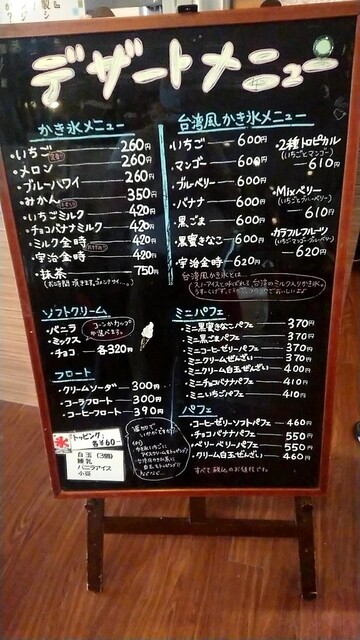 デザートメニュー
かき氷メニュー
・いちご 260円
・メロン 260円
・ブルーハワイ 260円
・みかん 350円
・いちごミルク 420円
・チョコバナナミルク 420円
・ミルク金時 420円
・宇治金時 420円
・抹茶 750円
ソフトクリーム
・バニラ
・ミックス
・チョコ 各320円
コーンかカップか選べます。
フロート
・クリームソーダ 300円
・コーラフロート 300円
・コーヒーフロート 390円
氷
トッピング:
各¥60-
白玉(3個)
練乳
バニラアイス
小豆
台湾風かき氷メニュー
・いちご 600円
・マンゴー 600円
・ブルーベリー 600円
・バナナ 600円
・黒ごま 600円
・黒蜜きなこ 600円
・宇治金時 620円
・2種トロピカル
(いちごとマンゴー)
610円
・Mixベリー
(いちごとブルーベリー)
610円
・カラフルフルーツ
(いちご・マンゴー・ブルーベリー)
620円
台湾風かき氷とは
ミニパフェ
・ミニ黒蜜きなこパフェ 370円
・ミニ黒ごまパフェ 370円
・ミニコーヒーゼリーパフェ 370円
・ミニクリームぜんざい 370円
・ミニクリーム白玉ぜんざい 400円
・ミニチョコバナナパフェ 410円
・ミニいちごパフェ 410円
パフェ
・コーヒーゼリーソフトパフェ 460円
・チョコバナナパフェ 550円
・ベリーベリーパフェ 550円
・クリーム白玉ぜんざい 460円
すべて税込のお値段です。